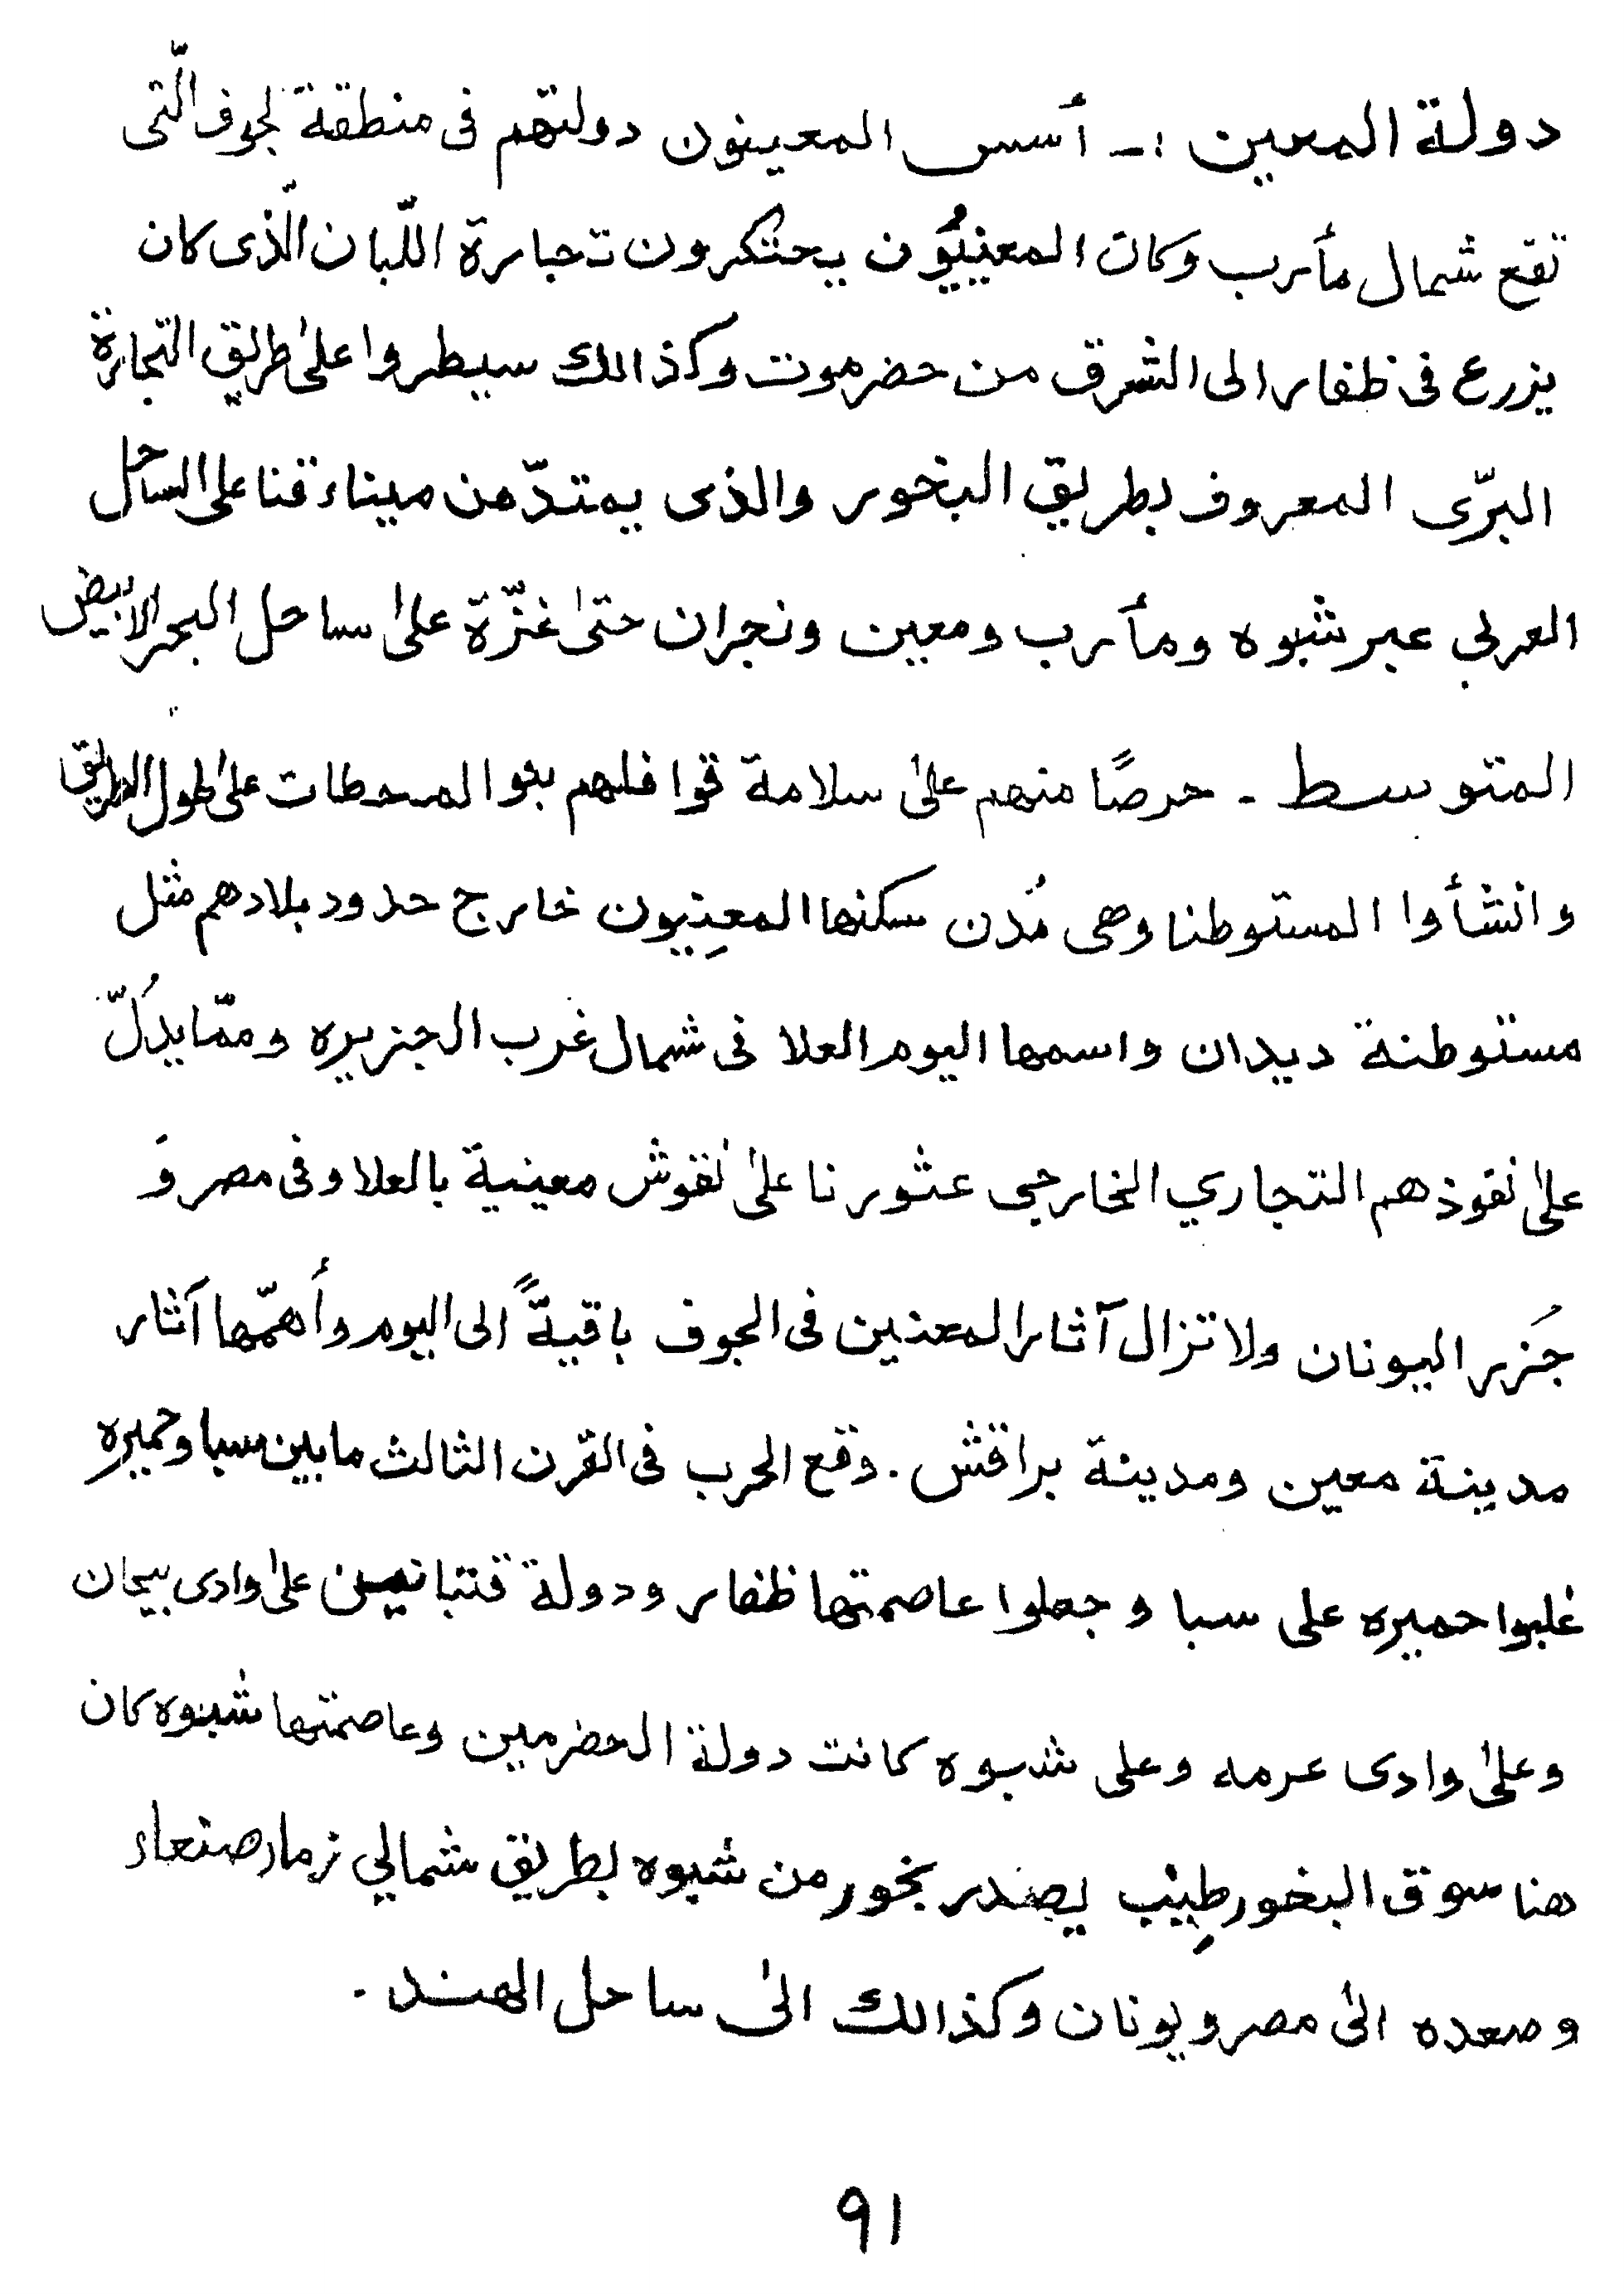 دولة المعين :ـ أسس المعينون دولتهم فى منطقة لجوف الّتى
تقع شمال مأرب وكان المعنييّون يحتكرون تجارة اللّبان الّذى كان
يزرع فى ظفار الى الشرق من حضرموت وكذالك سيطروا على طريق التجارة
البرّى المعروف بطريق البخور والذى يمتدّ من ميناء قنا على الساحل
العربي عبر شبوه ومأرب ومعين ونجران حتى غزّة على ساحل البحر الابيض
المتوسط - حرصًا منهم على سلامة قوافلهم بنوا المحطات على طول الطريق
وانشأوا المستوطنا وهى مُدن سكنها المعِنيون خارج حدود بلادهم مثل
مستوطنة ديدان واسمها اليوم العلا فى شمال غرب الجزيره وممّا يدُلّ
على نقوذهم التجاري الخارجي عثورنا على نقوش معينية بالعلا وفى مصر وَ
جَزير اليونان ولا تزال آثار المعنين فى الجوف باقيةً الى اليوم وأهمّها آثار
مدينة معين ومدينة براقش . وقع الحرب فى القرن الثالث مابين سبا وحميره
غلبوا حميره على سبا وجعلوا عاصمتها ظفار ودولة قتبانيين على وادى بيحان
وعلى وادى عرمه وعلى شبوه كانت دولة الحضرمين وعاصمتها شبوه كان
هنا سوق البخور طِيْب يصدر بخور من شبوه بطريق شمالي زمار صنعاء
وصعده الى مصر ويونان وكذالك الى ساحل الهند .
٩١